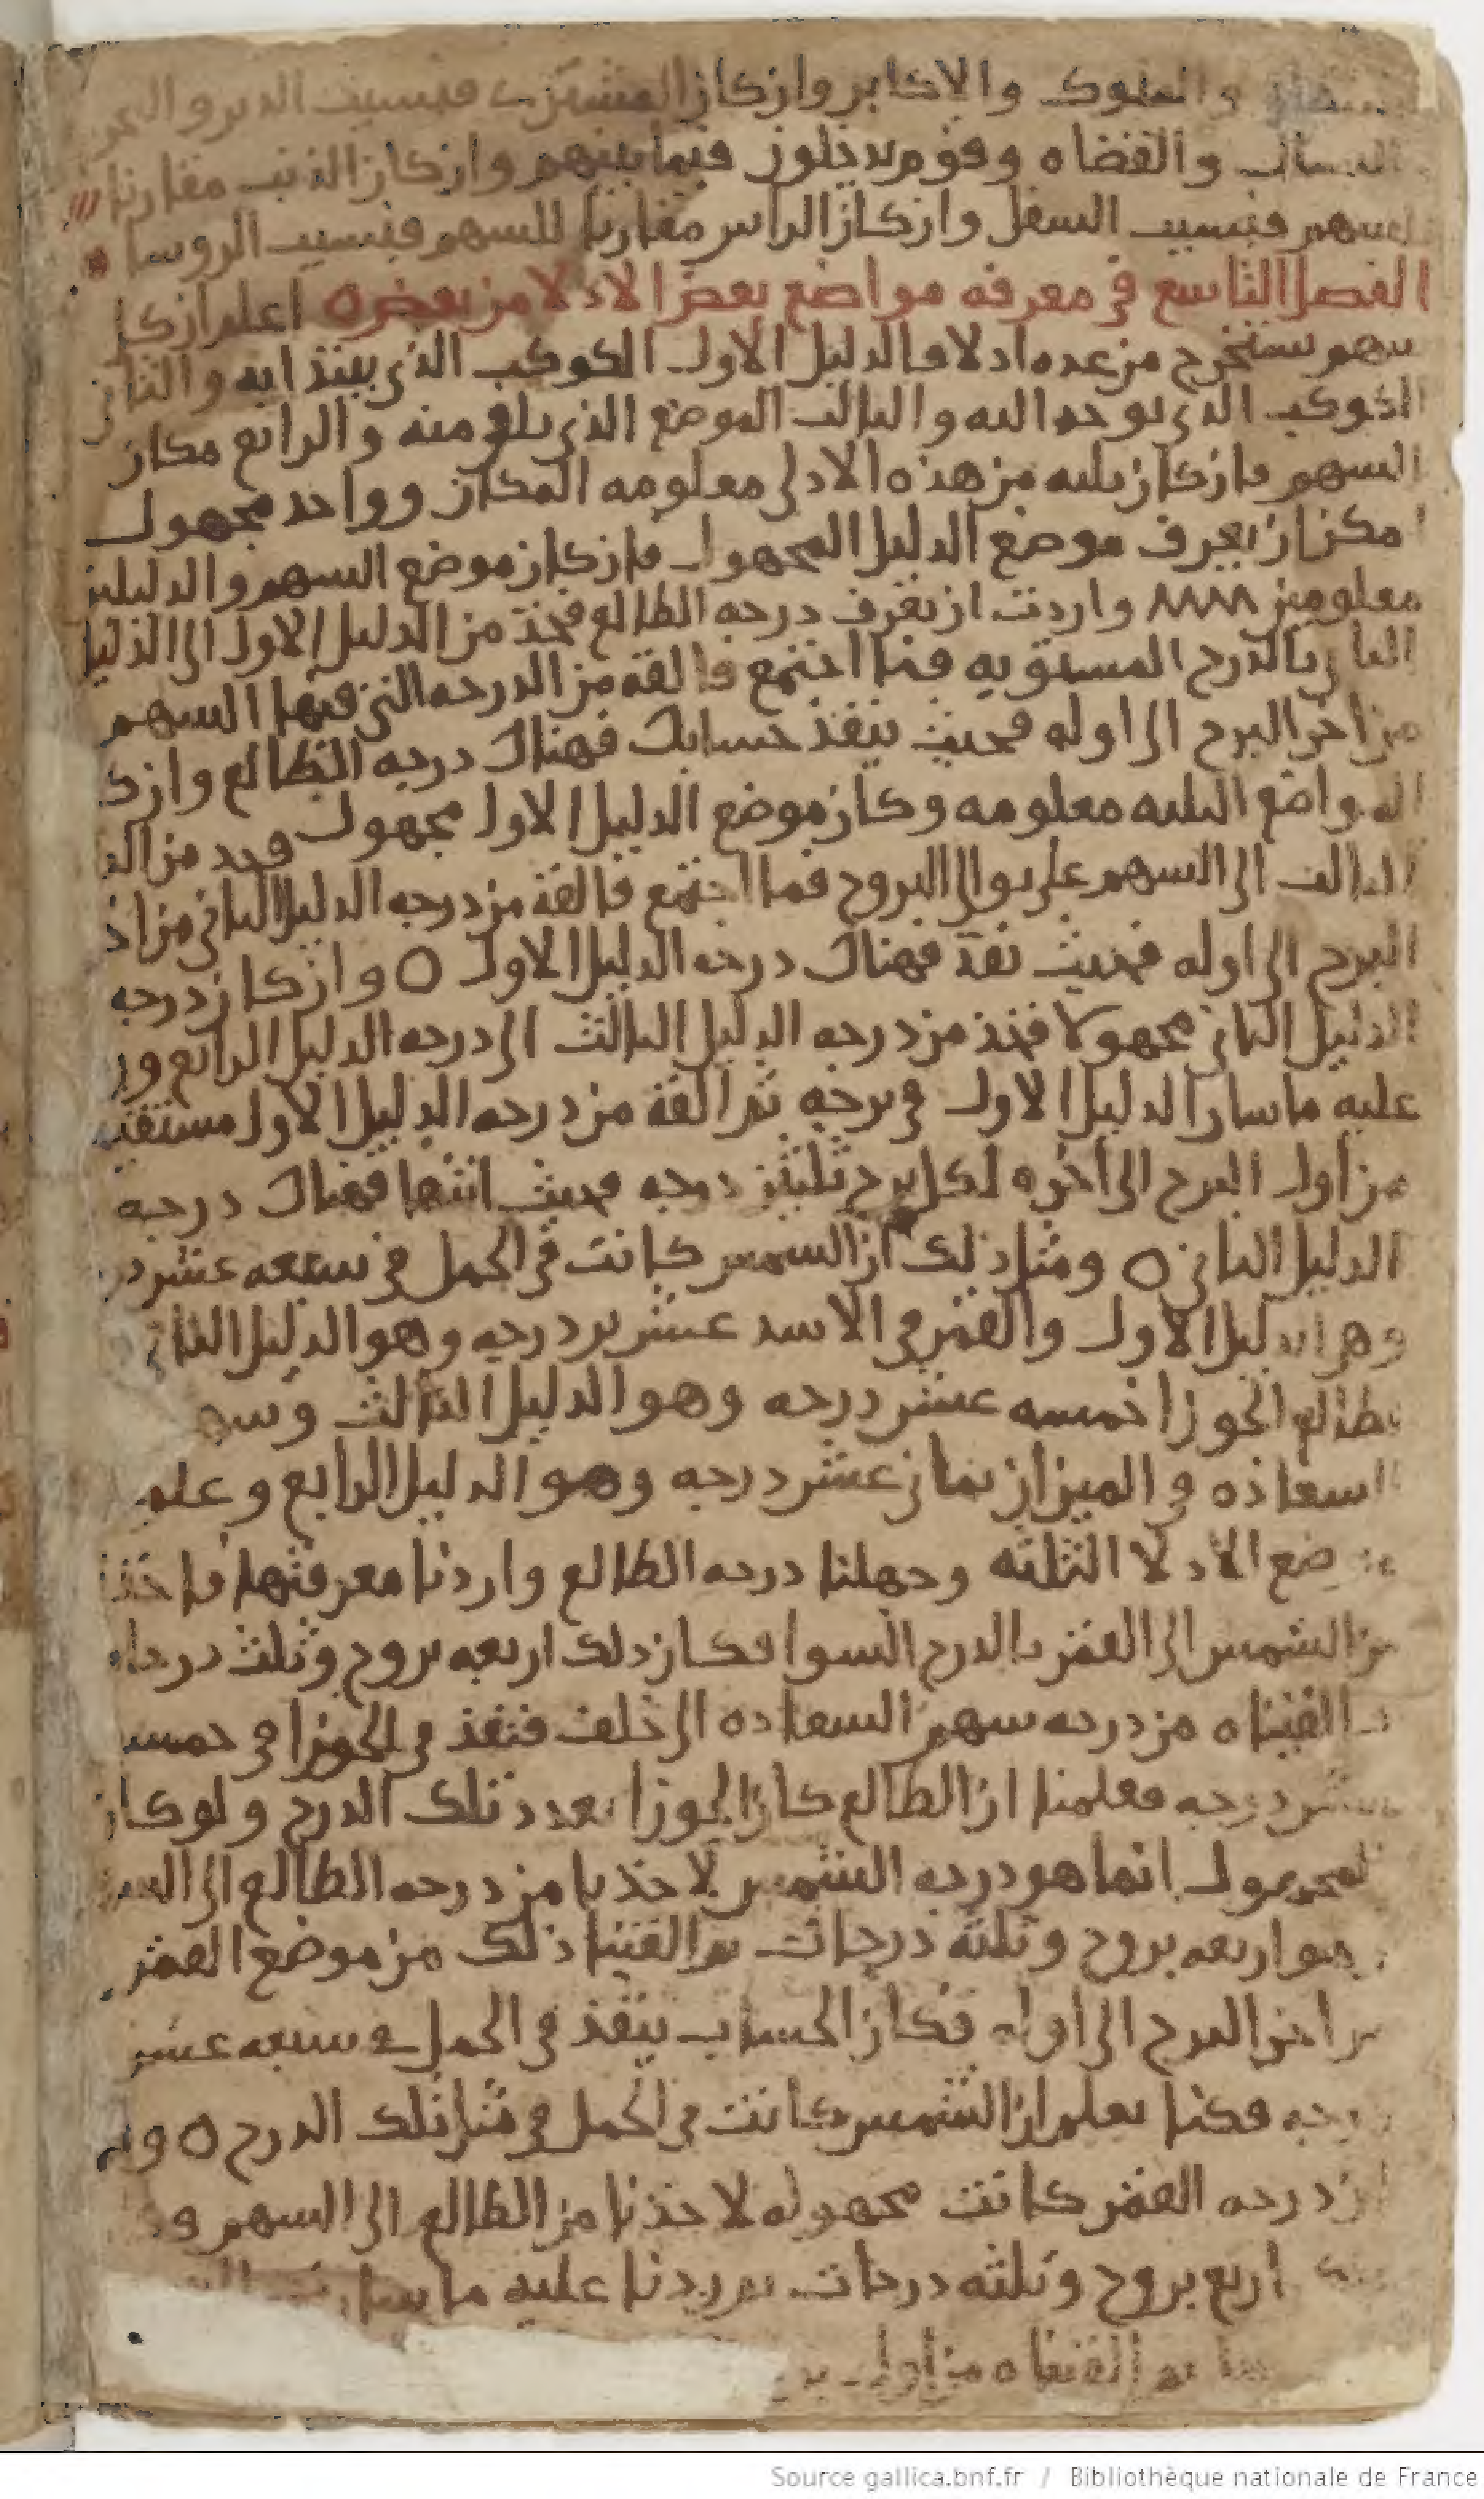 والملوك والاكابر وان كان المشتري فبسبب الدين و
والقضاه وقوم يدخلون فيما بينهم وان كان الذنب مقارنا
للسهم فبسبب السفل وان كان الراس مقارنا للسهم فبسبب الروسا
الفصل التاسع في معرفه مواضع بعض الادلا من بعض ٥ اعلم ان كل
سهم يستخرج من عده ادلا فالدليل الاول الكوكب الذي يبتدا به والثاني
الكوكب الذي يوخد اليه والثالث الموضع الذي يلقي منه والرابع مكان
السهم فان كان ثلثه من هذه الادلي معلومه المكان وواحد مجهول
امكن ان يعرف موضع الدليل المجهول فان كان موضع السهم والدليلين
معلومين واردت ان تعرف درجه الطالع فخذ من الدليل الاول الى الدليل
الثاني بالدرج المستويه فما اجتمع فالقه من الدرجه التي فيها السهم
من اخر البرج الى اوله فحيث ينفذ حسابك فهناك درجه الطالع وان كا
المواضع الثلثه معلومه وكان موضع الدليل الاول مجهول فخد من الد
الثالث الى السهم على توالي البروج فما اجتمع فالقه من درجه الدليل الثاني من اخ
البرج الى اوله فحيث نفذ فهناك درجه الدليل الاول ٥ وان كان درجه
الدليل الثاني مجهولا فخذ من درجه الدليل الثالث الى درجه الدليل الرابع وز
عليه ما سار الدليل الاول في برجه ثم القه من درجه الدليل الاول
من اول البرج الى اخره لكل برج ثلثين درجه فحيث انتها فهناك درجه
الدليل الثاني ٥ ومثل ذلك ان الشمس كانت في الحمل في سبعه عشر در
وهي الدليل الاول والقمر في الاسد عشرين درجه وهو الدليل الثاني
الطالع الجوزا خمسه عشر درجه وهو الدليل الثالث وسهم
السعاده في الميزان ثماني عشر درجه وهو الدليل الرابع وعلم
موضع الادلا الثلثه وجهلنا درجه الطالع واردنا معرفتها فاخذنا
من الشمس الى القمر بالدرج السوا فكان ذلك اربعه بروج وثلث درجات
فالقيناه من درجه سهم السعاده الى خلف فنفذ في الجوزا في خمسه
عشر درجه فعلمنا ان الطالع كان الجوزا بعدد تلك الدرج ولو كان
المجهول انما هو درجه الشمس لاخذنا من درجه الطالع الى السهم
وهو اربعه بروج وثلثه درجات ثم القينا ذلك من موضع القمر
من اخر البرج الى اوله فكان الحساب ينفذ في الحمل في سبعه عشر
درجه فكنا نعلم ان الشمس كانت في الحمل في مثل تلك الدرج ٥ ولو
ان درجه القمر كانت مجهوله لاخذنا من الطالع الى السهم و
اربع بروج وثلثه درجات ثم زدنا عليه ما سارت
ثم القيناه من اول
Source gallica.bnf.fr / Bibliothèque nationale de France